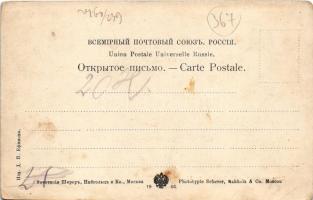 367
ВСЕМІРНЫЙ ПОЧТОВЫЙ СОЮЗЪ. РОССІЯ.
Union Postale Universelle Russie.
Открытое письмо. — Carte Postale.
Изд. Д. П. Ефимова.
Фототипія Шереръ, Набгольцъ и Ко., Москва
19
Phototypie Scherer, Nabholz & Co. Moscou